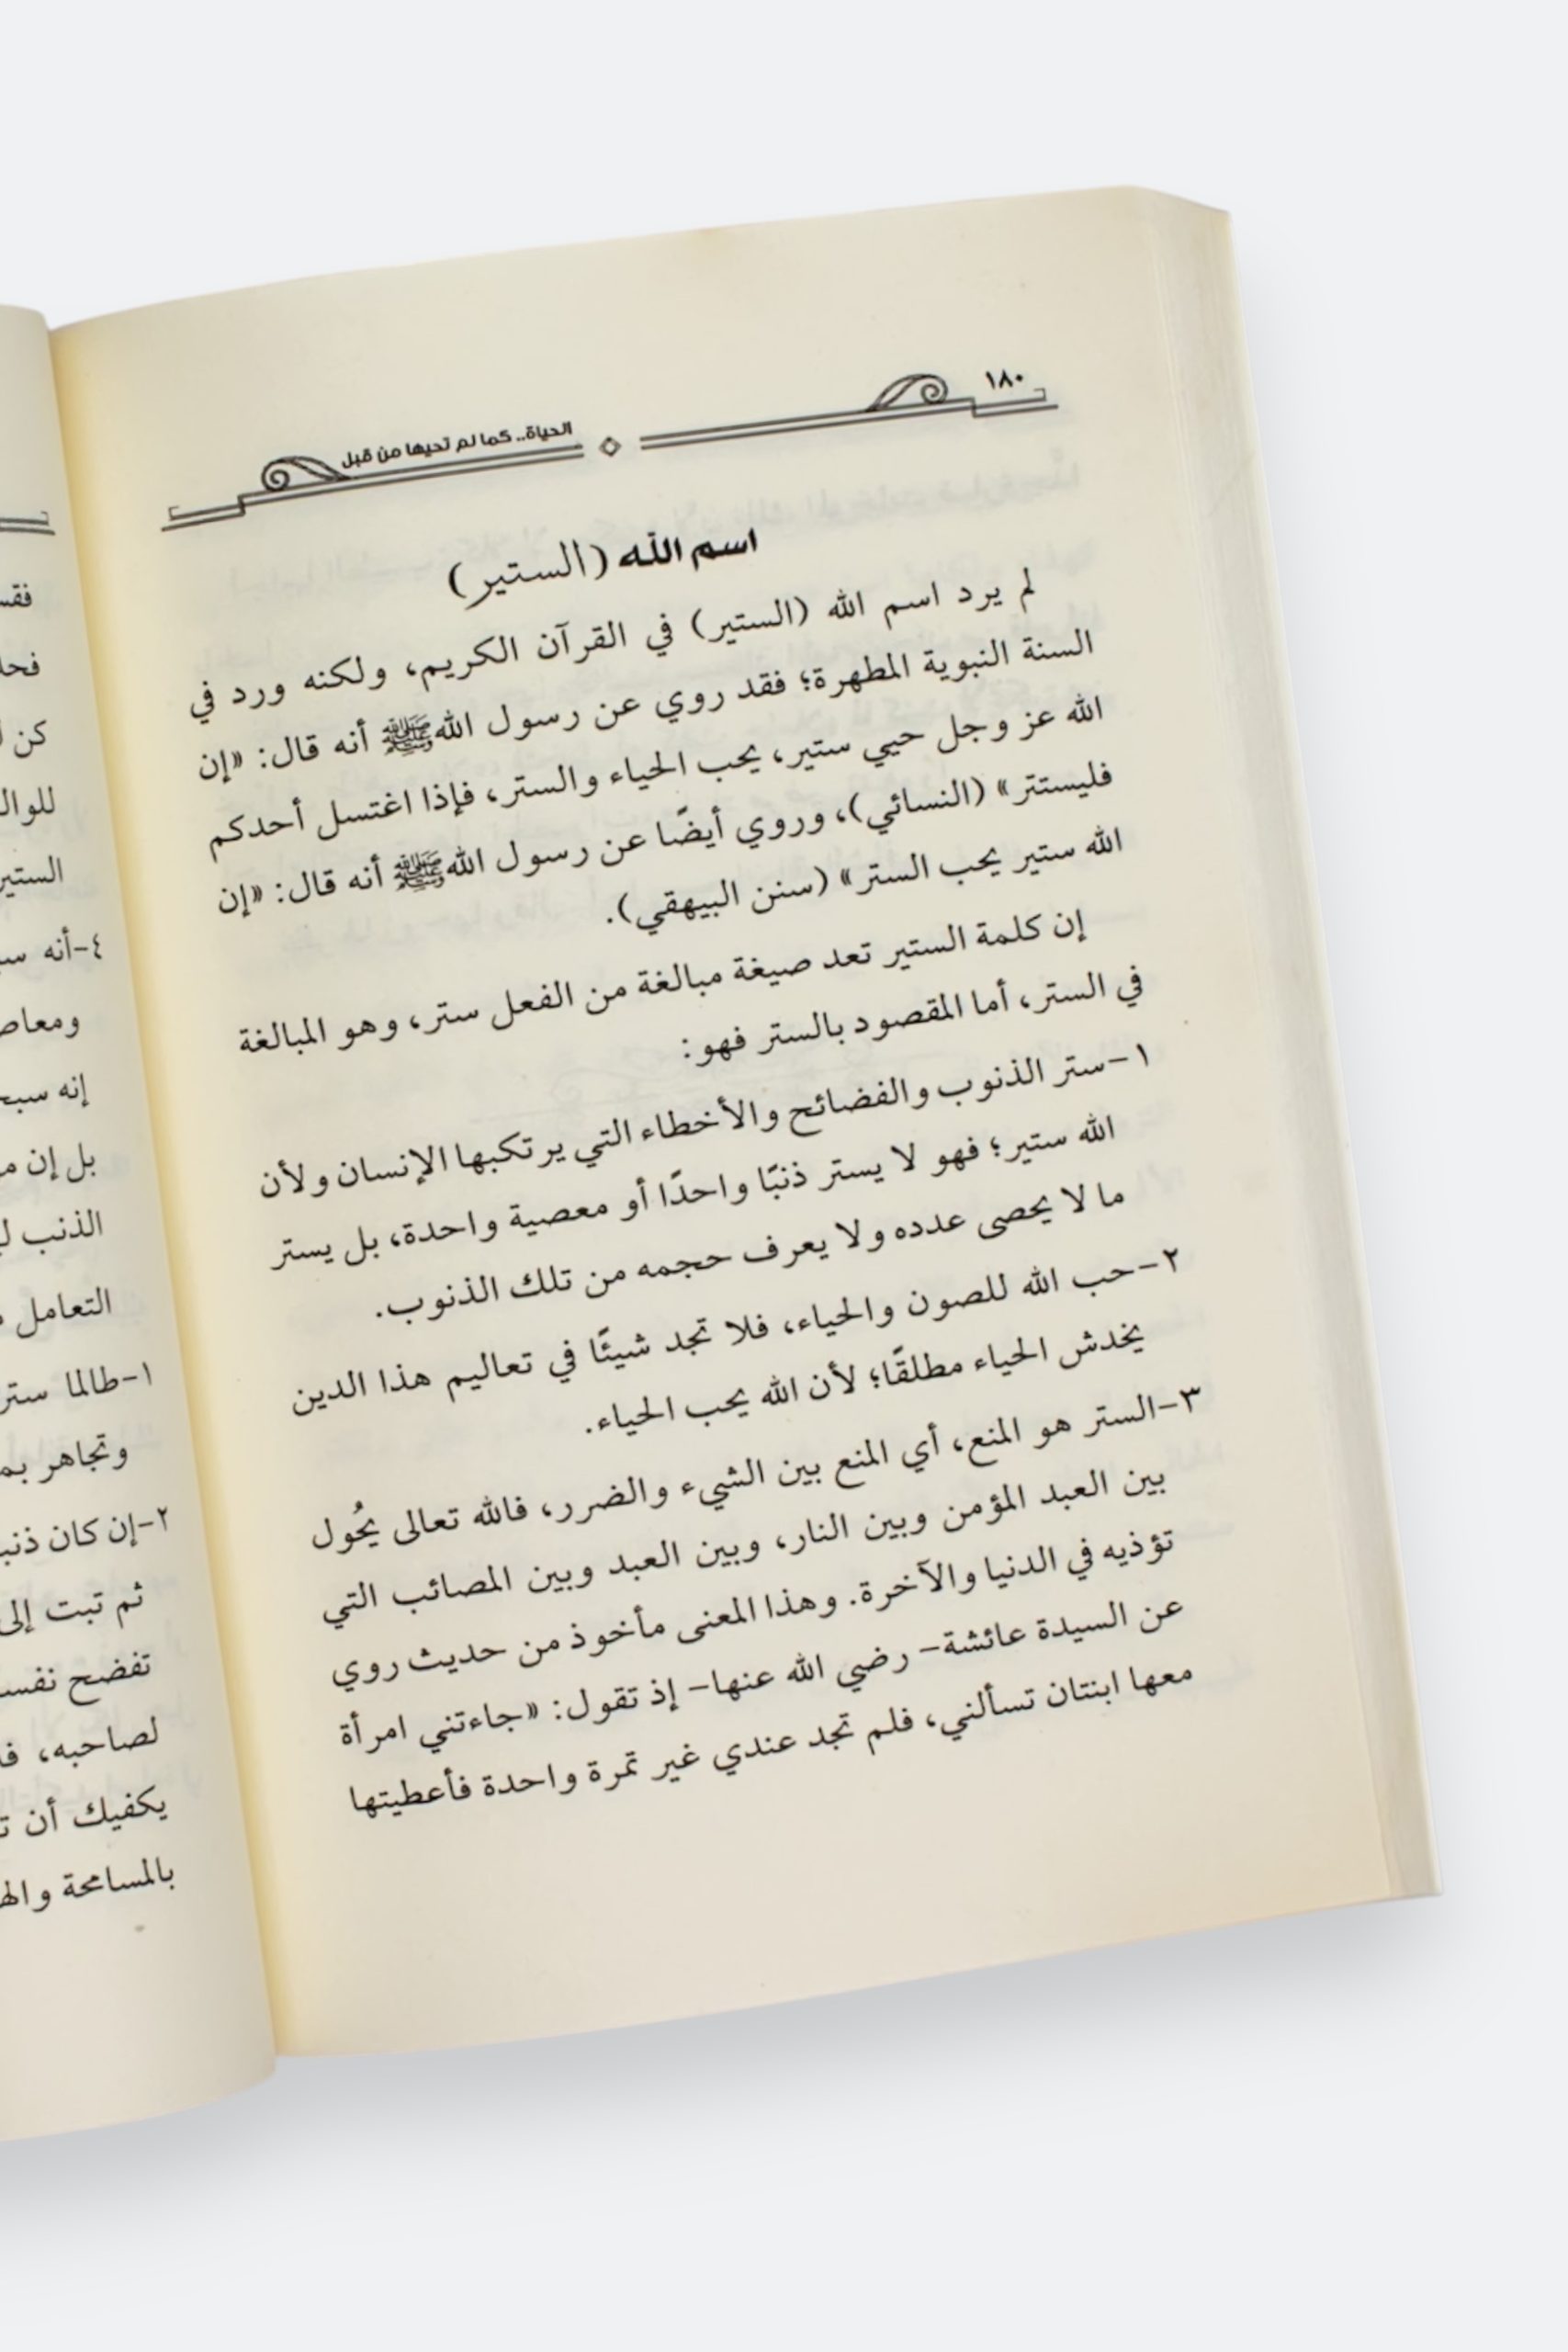 ١٨٠
الحياة.. كما لم تحيها من قبل
اسم الله (الستير)
لم يرد اسم الله (الستير) في القرآن الكريم، ولكنه ورد في
السنة النبوية المطهرة؛ فقد روي عن رسول الله ﷺ أنه قال: «إن
الله عز وجل حيي ستير، يحب الحياء والستر، فإذا اغتسل أحدكم
فليستتر» (النسائي)، وروي أيضًا عن رسول الله ﷺ أنه قال: «إن
الله ستير يحب الستر» (سنن البيهقي).
إن كلمة الستير تعد صيغة مبالغة من الفعل ستر، وهو المبالغة
في الستر، أما المقصود بالستر فهو:
١-ستر الذنوب والفضائح والأخطاء التي يرتكبها الإنسان ولأن
الله ستير؛ فهو لا يستر ذنبًا واحدًا أو معصية واحدة، بل يستر
ما لا يحصى عدده ولا يعرف حجمه من تلك الذنوب.
٢-حب الله للصون والحياء، فلا تجد شيئًا في تعاليم هذا الدين
يخدش الحياء مطلقًا؛ لأن الله يحب الحياء.
٣-الستر هو المنع، أي المنع بين الشيء والضرر، فالله تعالى يحُول
بين العبد المؤمن وبين النار، وبين العبد وبين المصائب التي
تؤذيه في الدنيا والآخرة. وهذا المعنى مأخوذ من حديث روي
عن السيدة عائشة- رضي الله عنها- إذ تقول: «جاءتني امرأة
معها ابنتان تسألني، فلم تجد عندي غير تمرة واحدة فأعطيتها
كن
الستير
٤-أنه
إنه
بل إن
الذنب
التعامل
١-طالما ستر
وتجاهر
٢-إن كان
ثم تبت إلى
تفضح
لصاحبه،
يكفيك أن
بالمسامحة